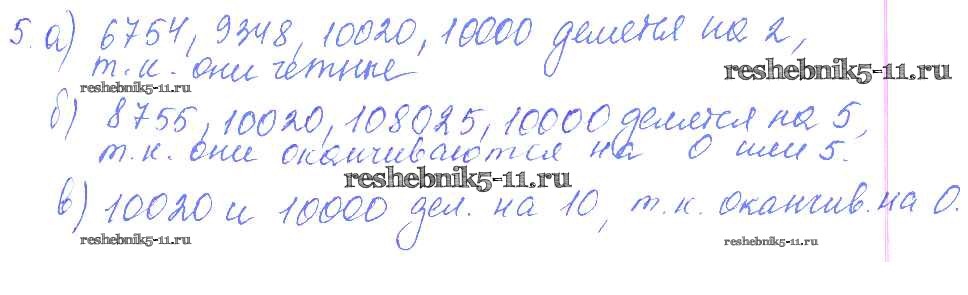 5. а) 6754, 9348, 10020, 10000 делятся на 2,
т.к. они четные
reshebnik5-11.ru
reshebnik5-11.ru
б) 8755, 10020, 108025, 10000 делятся на 5,
т.к. они оканчиваются на 0 или 5.
reshebnik5-11.ru
в) 10020 и 10000 дел. на 10, т.к. оканчив. на 0.
reshebnik5-11.ru
reshebnik5-11.ru